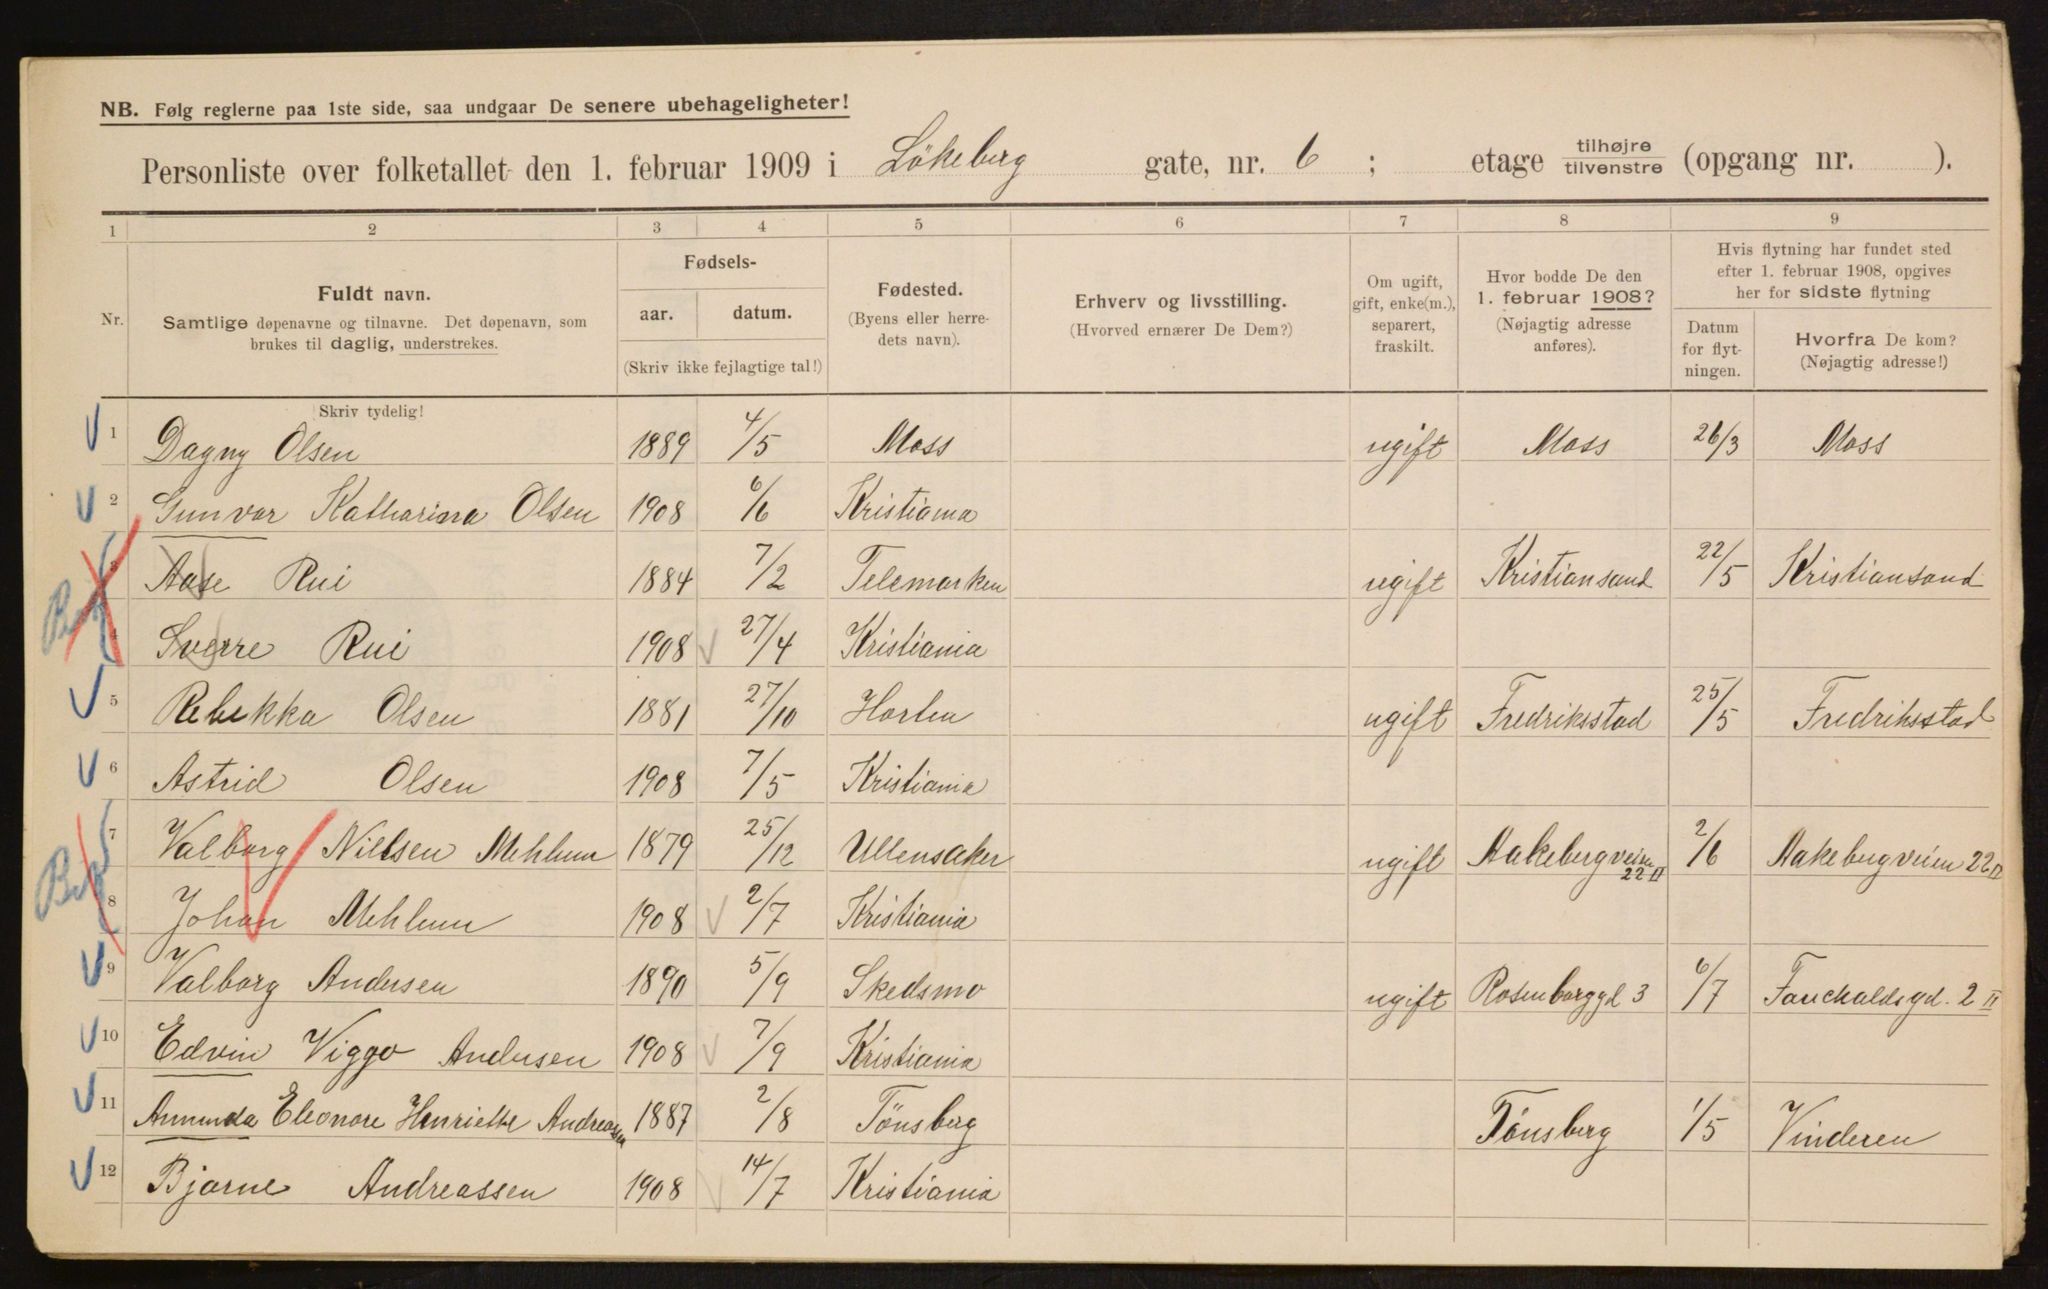 NB. Følg reglerne paa 1ste side, saa undgaar De senere ubehageligheter!
Personliste over folketallet den 1. februar 1909 i Lökeberg gate, nr. 6 ; etage tilhøjre / tilvenstre (opgang nr. ).
1 2 3 4 5 6 7 8 9
Nr.
Fuldt navn.
Samtlige døpenavne og tilnavne. Det døpenavn, som
brukes til daglig, understrekes.
Skriv tydelig!
Fødsels-
aar. datum.
(Skriv ikke fejlagtige tal!)
Fødested.
(Byens eller herre-
dets navn).
Erhverv og livsstilling.
(Hvorved ernærer De Dem?)
Om ugift,
gift, enke(m.),
separert,
fraskilt.
Hvor bodde De den
1. februar 1908?
(Nøjagtig adresse
anføres).
Hvis flytning har fundet sted
efter 1. februar 1908, opgives
her for sidste flytning
Datum
for flyt-
ningen.
Hvorfra De kom?
(Nøjagtig adresse!)
1 Dagny Olsen 1889 4/5 Moss ugift Moss 26/3 Moss
2 Gunvor Katharina Olsen 1908 6/6 Kristiania
3 Aase Rui 1884 7/2 Telemarken ugift Kristiansand 22/5 Kristiansand
4 Sverre Rui 1908 27/4 Kristiania
5 Rebekka Olsen 1881 27/10 Horten ugift Fredriksstad 25/5 Fredriksstad
6 Astrid Olsen 1908 7/5 Kristiania
7 Valborg Nielsen Mehlum 1879 25/12 Ullensaker ugift Aakebergveien 22 II 2/6 Aakebergveien 22 II
8 Johan Mehlum 1908 2/7 Kristiania
9 Valborg Andersen 1890 5/9 Skedsmo ugift Rosenborggd 3 6/7 Fauchaldsgd. 2 II
10 Edvin Viggo Andersen 1908 7/9 Kristiania
11 Amunda Eleonore Henriette Andreassen 1887 2/8 Tönsberg Tönsberg 1/5 Vinderen
12 Bjarne Andreassen 1908 14/7 Kristiania